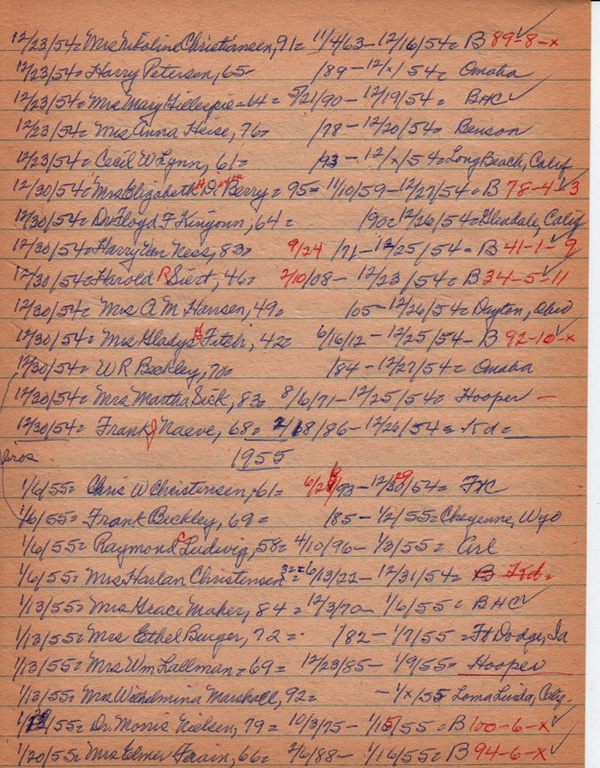 12/23/54= Mrs Nikoline Christiansen, 91= 11/4/63-12/16/54= B 89-8-x ✓
12/23/54= Harry Petersen, 65= /89-12/x/54= Omaha
12/23/54= Mrs Mary Gillespie=64= 5/21/90-12/19/54= BHC ✓
12/23/54= Mrs Anna Heise, 76= /78-12/20/54= Benson
12/23/54= Cecil W Lynn, 61= /93-12/x/54= Long Beach, Calif
12/30/54= Mrs Elizabeth D. Berry= 95= 11/10/59-12/27/54= B 78-4-3 ✓
12/30/54= Dr Floyd F Kinyoun, 64= /90=12/26/54= Glendale, Calif
12/30/54= Harry Van Ness, 83= 9/24 /71-12/25/54= B 41-1-9 ✓
12/30/54= Harold R Siert, 46= 2/10/08-12/23/54= B 34-5-11 ✓
12/30/54= Mrs A. M. Hansen, 49= /05-12/26/54= Dayton, Ohio
12/30/54= Mrs Gladys Fitch, 42= 6/16/12-12/25/54- B 92-10-x ✓
12/30/54= W R Beckley, 70= /84-12/27/54= Omaha
12/30/54= Mrs Martha Sick, 83= 8/6/71-12/25/54= Hooper -
12/30/54= Frank J Naeve, 68= 2/18/86-12/26/54= Kd=
1955
Bros
1/6/55= Chris W Christensen, 61= /93-12/ /54= FHC
1/6/55= Frank Beckley, 69= /85-1/2/55= Cheyenne, Wyo
1/6/55= Raymond C Ludwig, 58= 4/10/96-1/3/55= Arl
1/6/55= Mrs Harlan Christensen 32= 6/13/22-12/31/54= B Kd=
1/13/55= Mrs Grace Maher, 84= 12/3/70-1/6/55= BHC ✓
1/13/55= Mrs Ethel Burger, 72= /82-1/7/55= Ft Dodge, Ia
1/13/55= Mrs Wm Lallman=69= 12/23/85-1/9/55= Hooper
1/13/55= Mrs Wilhelmina Marshall, 92= -1/x/55 Loma Linda, Calif.
/55= Dr. Morris Nielsen, 79= 10/3/75-1/15/55= B 100-6-x ✓
1/20/55= Mrs Elmer Frain, 66= 2/6/88-1/16/55= B 94-6-x ✓